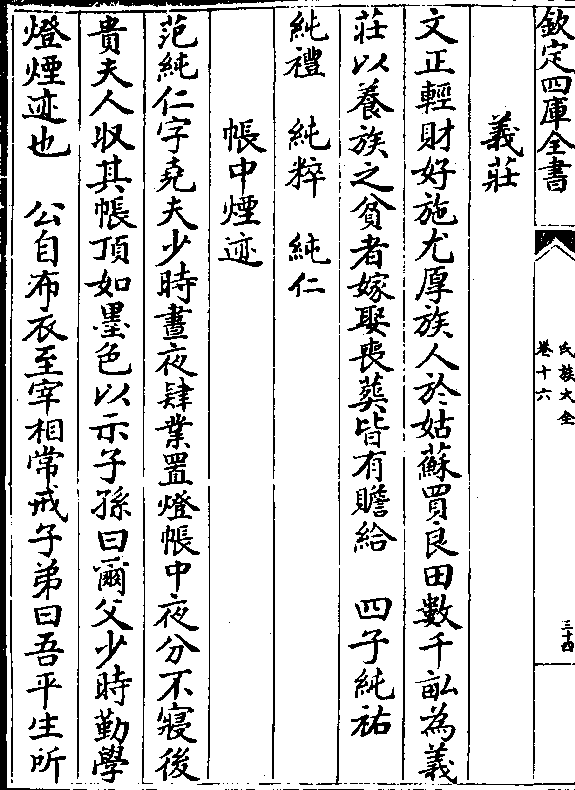 欽定四庫全書
氏族大全
卷十六
三十四
義莊
文正輕財好施尤厚族人於姑蘇買良田數千畝為義
莊以養族之貧者嫁娶喪葬皆有贍給 四子純祐
純禮 純粹 純仁
帳中煙迹
范純仁字堯夫少時晝夜肄業置燈帳中夜分不寢後
貴夫人収其帳頂如墨色以示子孫曰爾父少時勤學
燈煙迹也 公自布衣至宰相常戒子弟曰吾平生所